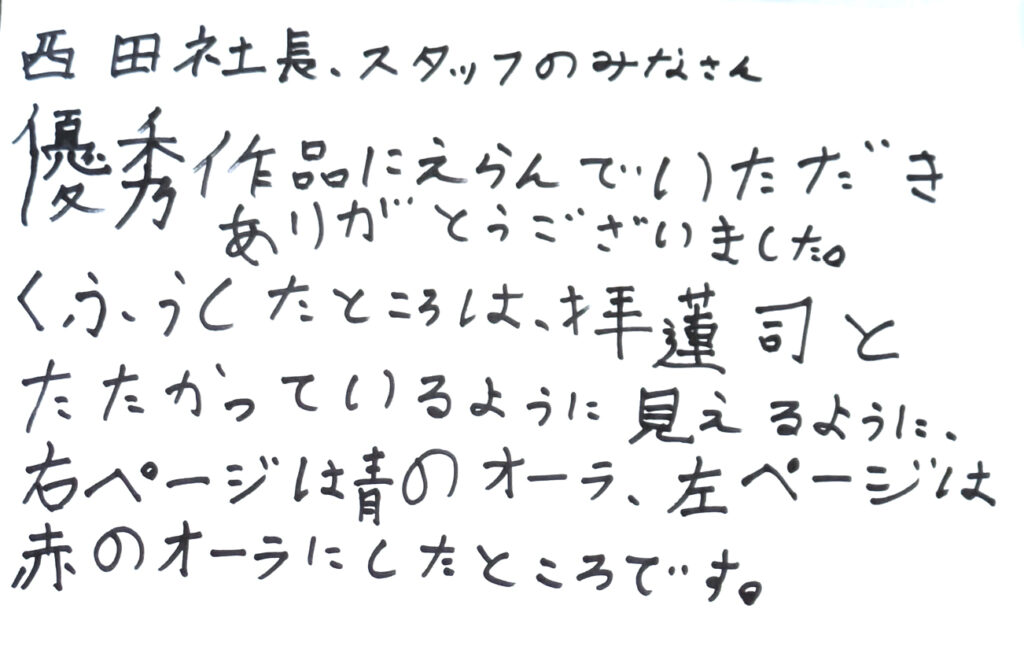 西田社長、スタッフのみなさん
優秀作品にえらんでいただき
ありがとうございました。
くふうしたところは、拝蓮司と
たたかっているように見えるように、
右ページは青のオーラ、左ページは
赤のオーラにしたところです。